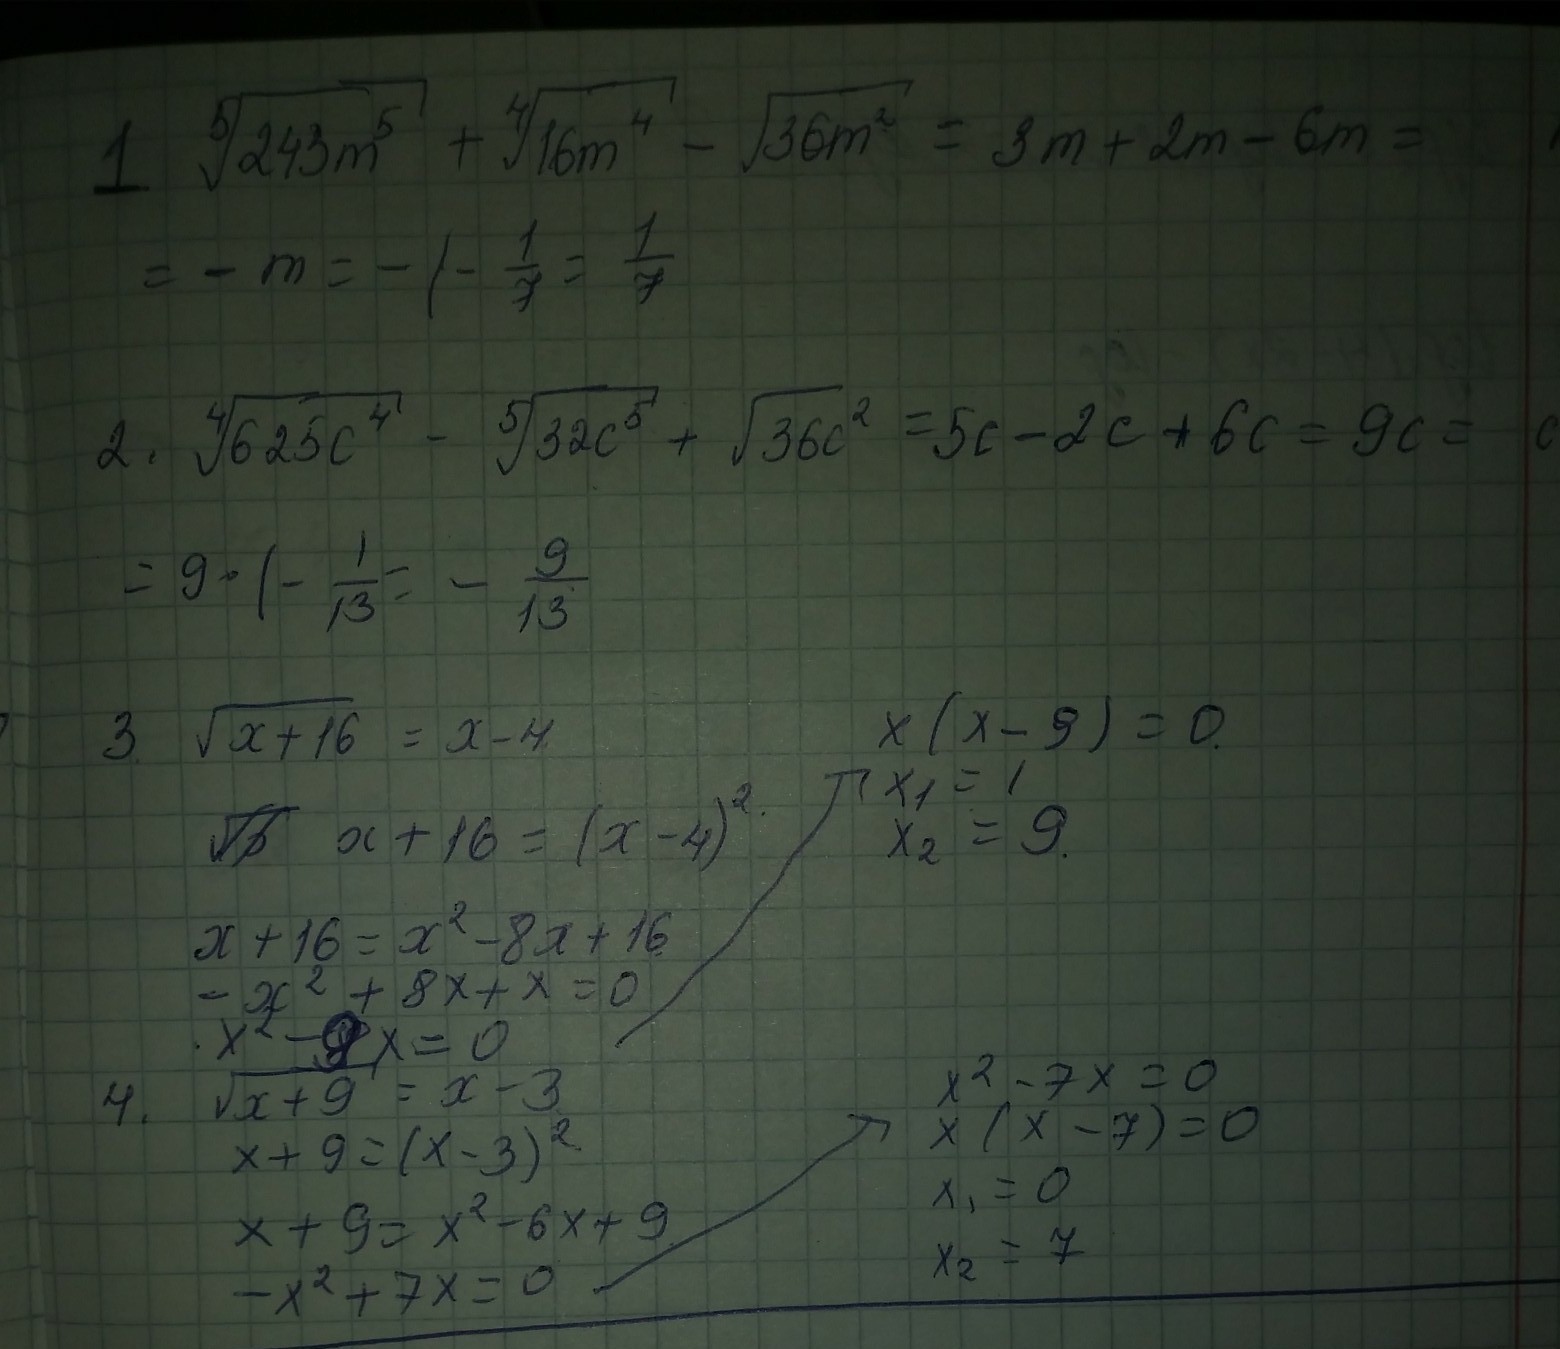 1 ⁵√243m⁵ + ⁴√16m⁴ - √36m² = 3m + 2m - 6m =
= - m = - (- 1/7 = 1/7
2. ⁴√625c⁴ - ⁵√32c⁵ + √36c² = 5c - 2c + 6c = 9c =
= 9 · (- 1/13 = - 9/13
3. √x+16 = x-4
x + 16 = (x-4)².
x + 16 = x² - 8x + 16
- x² + 8x + x = 0
x² - 9x = 0
x (x - 9) = 0.
x₁ = 1
x₂ = 9.
4. √x+9 = x - 3
x + 9 = (x-3)²
x + 9 = x² - 6x + 9
-x² + 7x = 0
x² - 7x = 0
x (x - 7) = 0
x₁ = 0
x₂ = 7